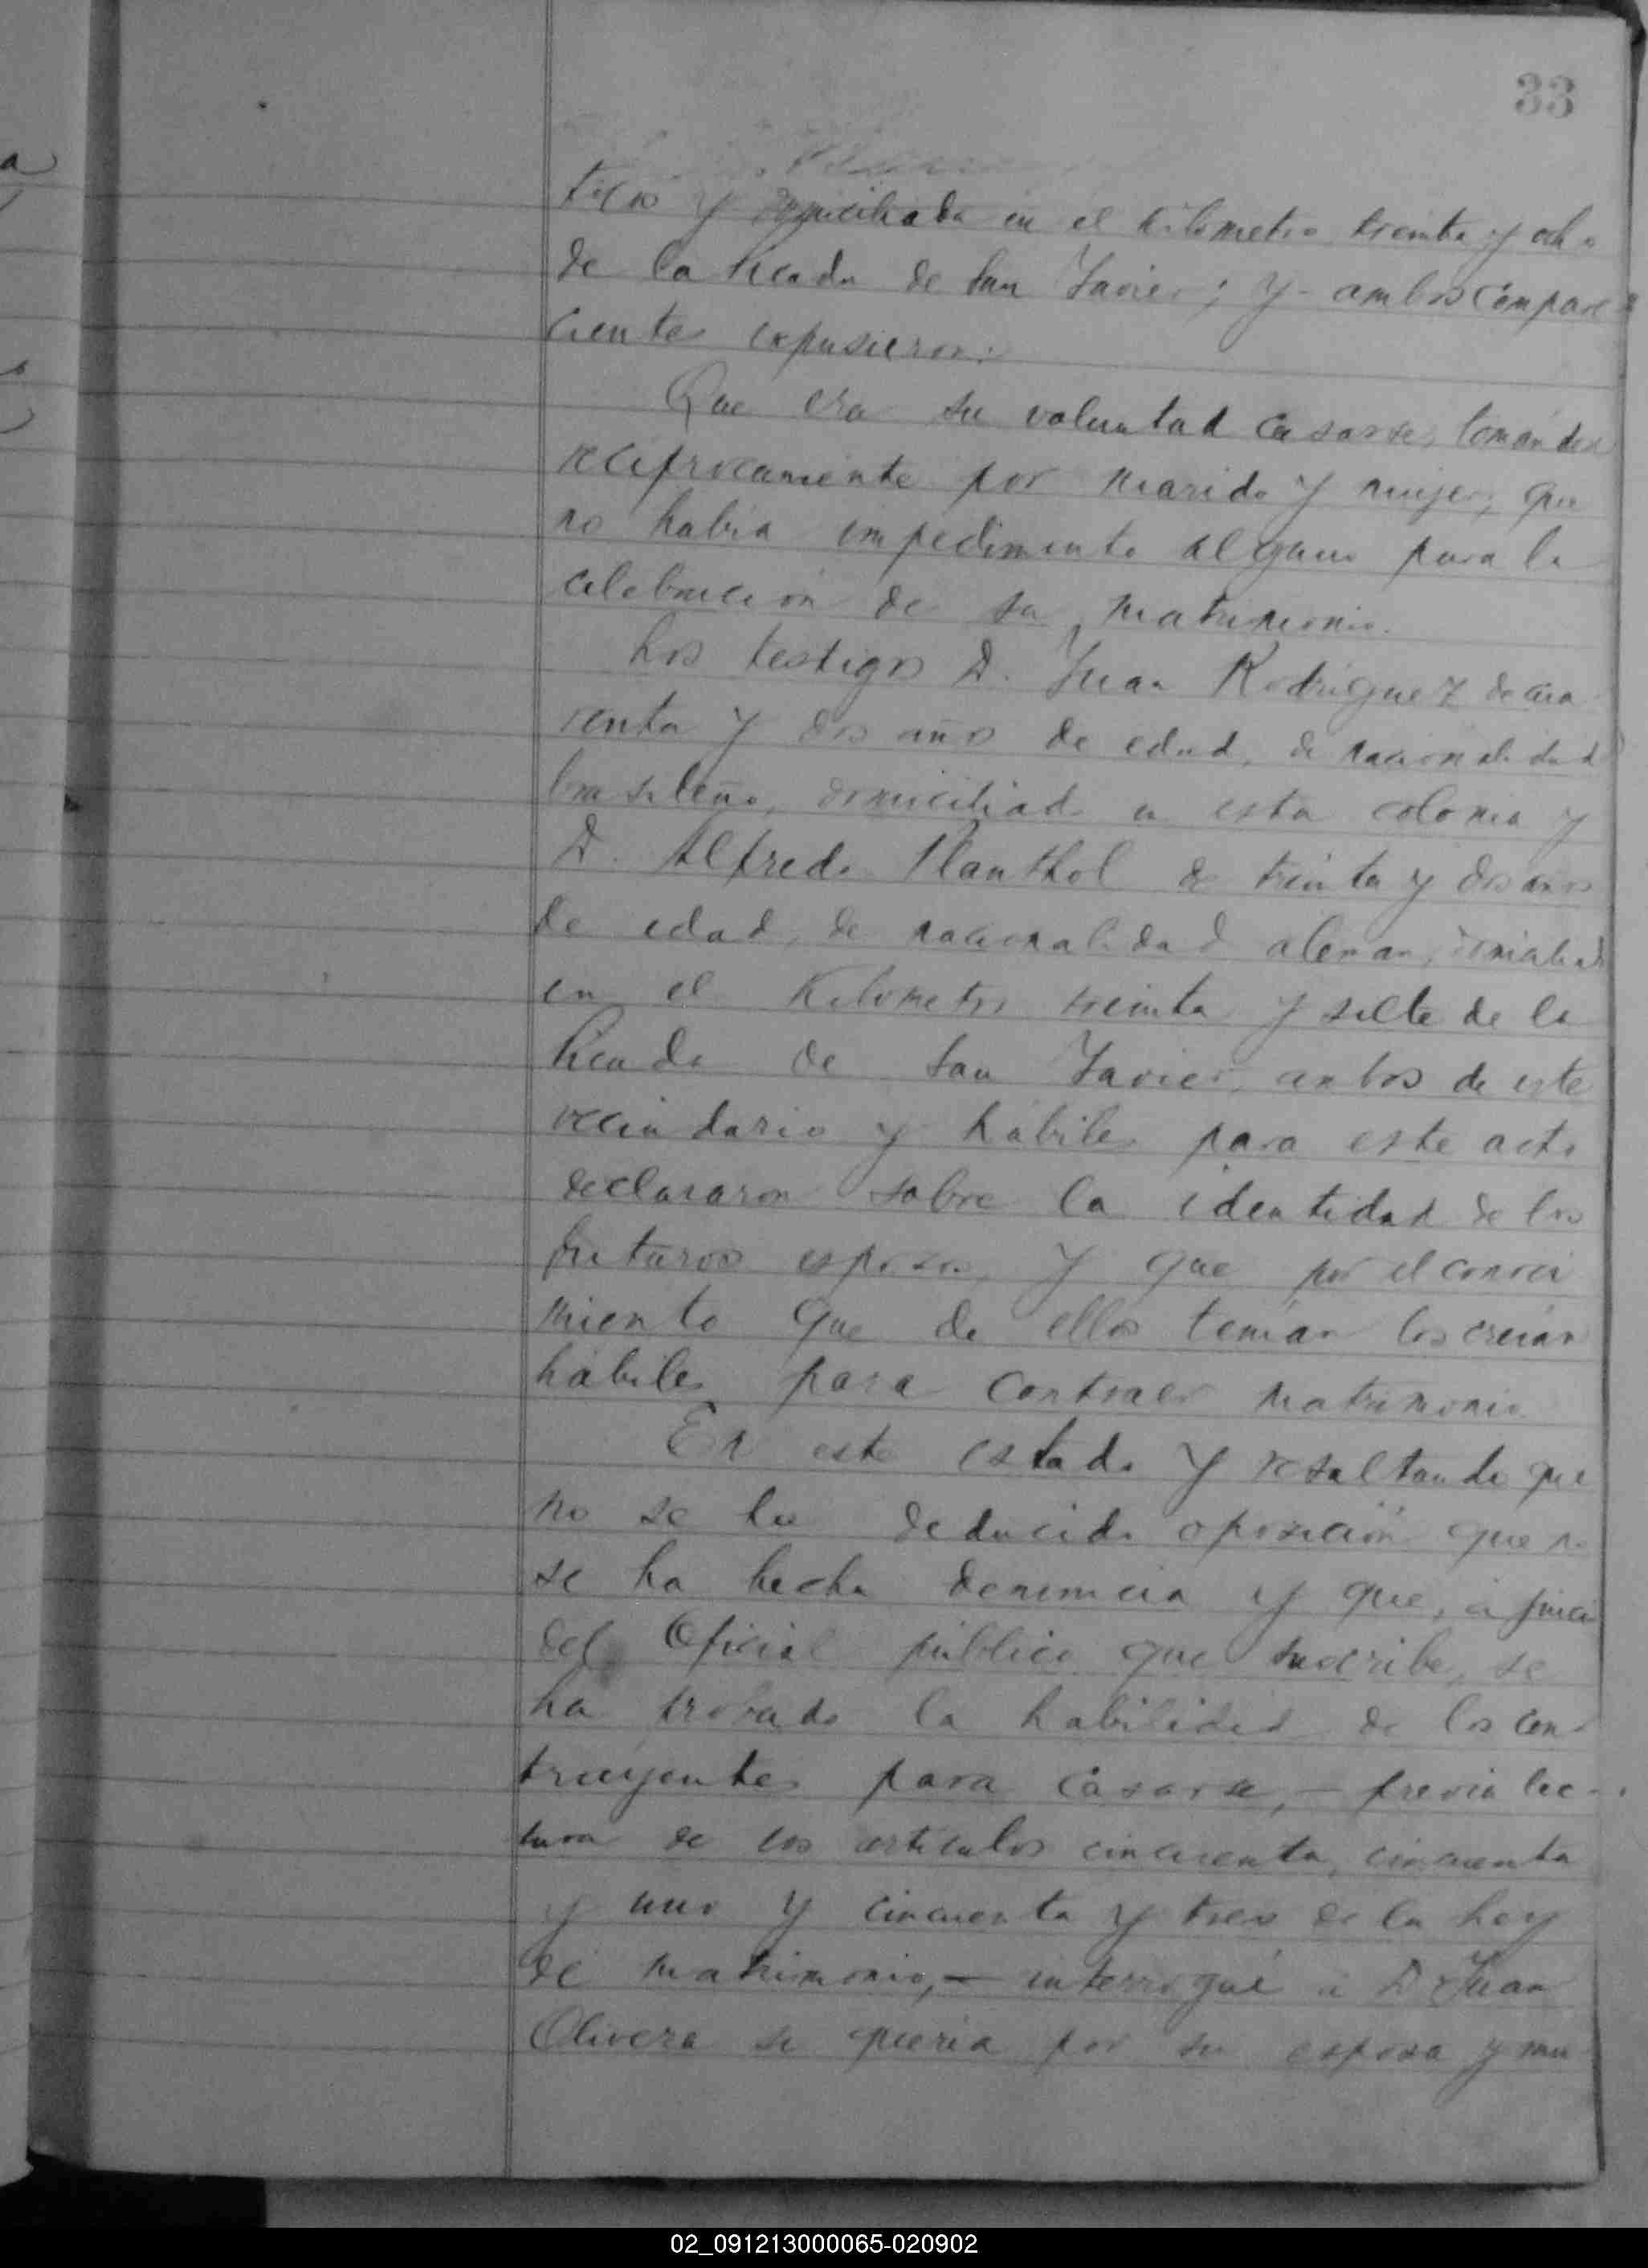 33
ticos y domiciliada en el kilometro treinta y ocho
de la Picada de San Javier; y ambos compare
cientes expusieron:
Que era su voluntad casarse, tomandose
reciprocamente por marido y mujer, que
no habia impedimento alguno para la
celebracion de su matrimonio.
Los testigos D. Juan Rodriguez de cua
renta y dos años de edad, de nacionalidad
brasileño, domiciliado en esta colonia y
D. Alfredo de treinta y dos años
de edad, de nacionalidad aleman, domiciliado
en el Kilometro treinta y siete de la
Picada de San Javier, ambos de este
vecindario y hábiles para este acto
declararon sobre la identidad de los
futuros esposos, y que por el conoci
miento que de ellos tenian los creian
hábiles para contraer matrimonio.
En este estado y resultando que
no se ha deducido oposición que no
se ha hecho denuncia y que, á juicio
del Oficial público que suscribe, se
ha probado la habilidad de los con
trayentes para casarse, – previa lec-
tura de los articulos cincuenta, cincuenta
y uno y cincuenta y tres de la Ley
de matrimonio, – interrogué á D Juan
Olivera si queria por su esposa y mu
02_091213000065-020902